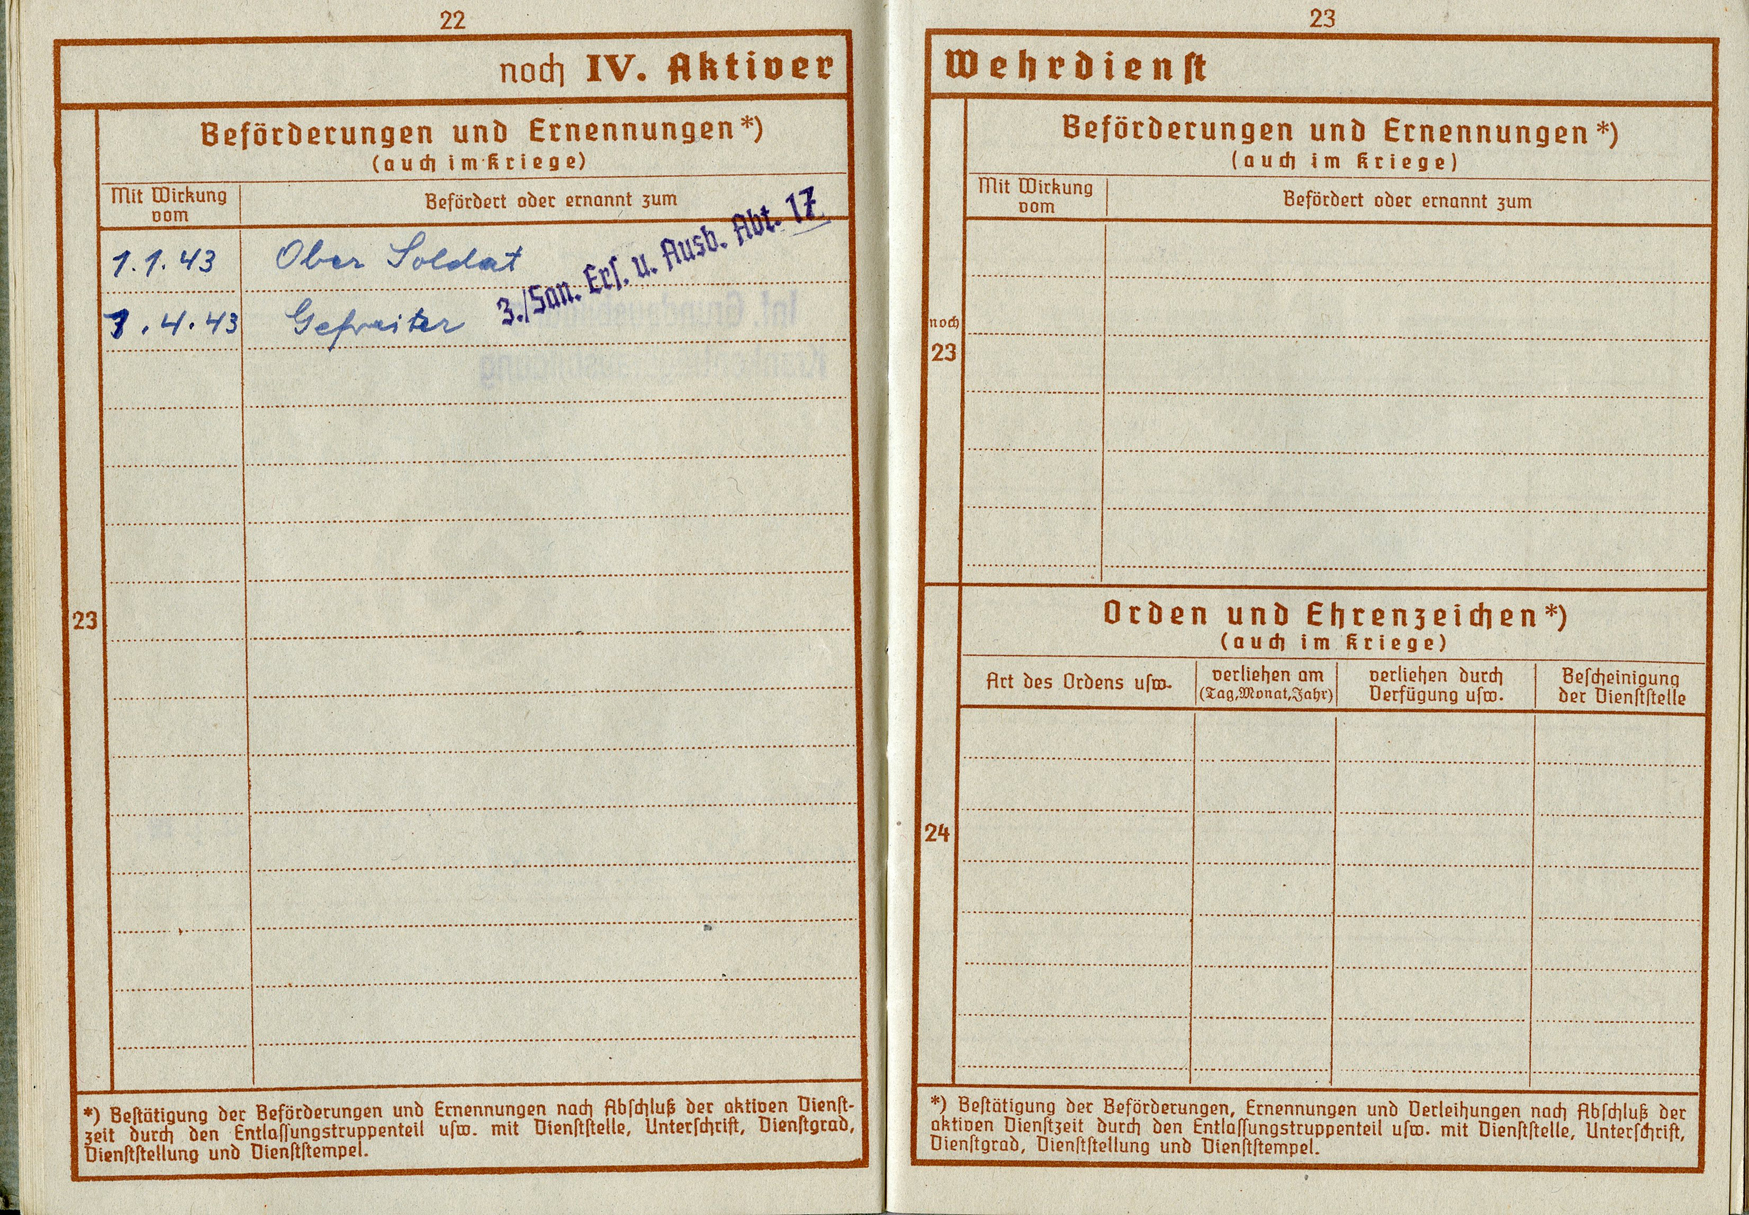 22
noch IV. Aktiver
Beförderungen und Ernennungen*)
(auch im Kriege)
Mit Wirkung
vom
Befördert oder ernannt zum
1.1.43 Ober Soldat
1.4.43 Gefreiter
3./San. Ers. u. Ausb. Abt. 17
23
*) Bestätigung der Beförderungen und Ernennungen nach Abschluß der aktiven Dienst-
zeit durch den Entlassungstruppenteil usw. mit Dienststelle, Unterschrift, Dienstgrad,
Dienststellung und Dienststempel.
23
Wehrdienst
Beförderungen und Ernennungen*)
(auch im Kriege)
Mit Wirkung
vom
Befördert oder ernannt zum
noch
23
Orden und Ehrenzeichen*)
(auch im Kriege)
Art des Ordens usw.
verliehen am
(Tag, Monat, Jahr)
verliehen durch
Verfügung usw.
Bescheinigung
der Dienststelle
24
*) Bestätigung der Beförderungen, Ernennungen und Verleihungen nach Abschluß der
aktiven Dienstzeit durch den Entlassungstruppenteil usw. mit Dienststelle, Unterschrift,
Dienstgrad, Dienststellung und Dienststempel.